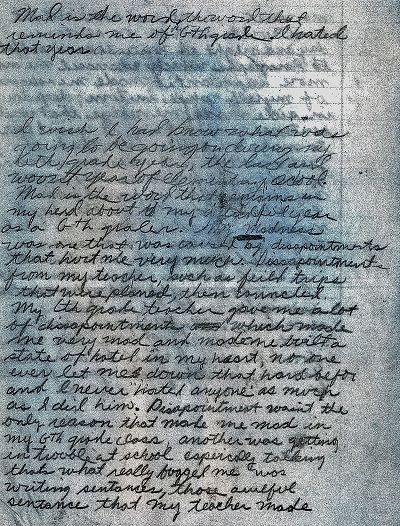 Mad is the word, the word that
reminds me of 6th grade. I hated
that year.
I wish I had know what was
going to be going on during my
6th grade year, the last and
worst year of elementary school.
Mad is the word that in
my head about my year
as a 6th grader. My madness
was one that was caused by disapointments
that hurt me very much. Dissapointments
from my teacher, such as feild trips
that were planed, then canceled.
My 6th grade teacher gave me a lot
of disapointments which made
me very mad and made me built a
state of hatred in my heart, no one
ever let me down that hard befor
and I never "hated anyone" as much
as I did him. Disapointment wasn't the
only reason that made me mad in
my 6th grade class, another was getting
in trouble at school especially talking
thats what really bugged me was
writing sentances, those awful
sentance that my teacher made